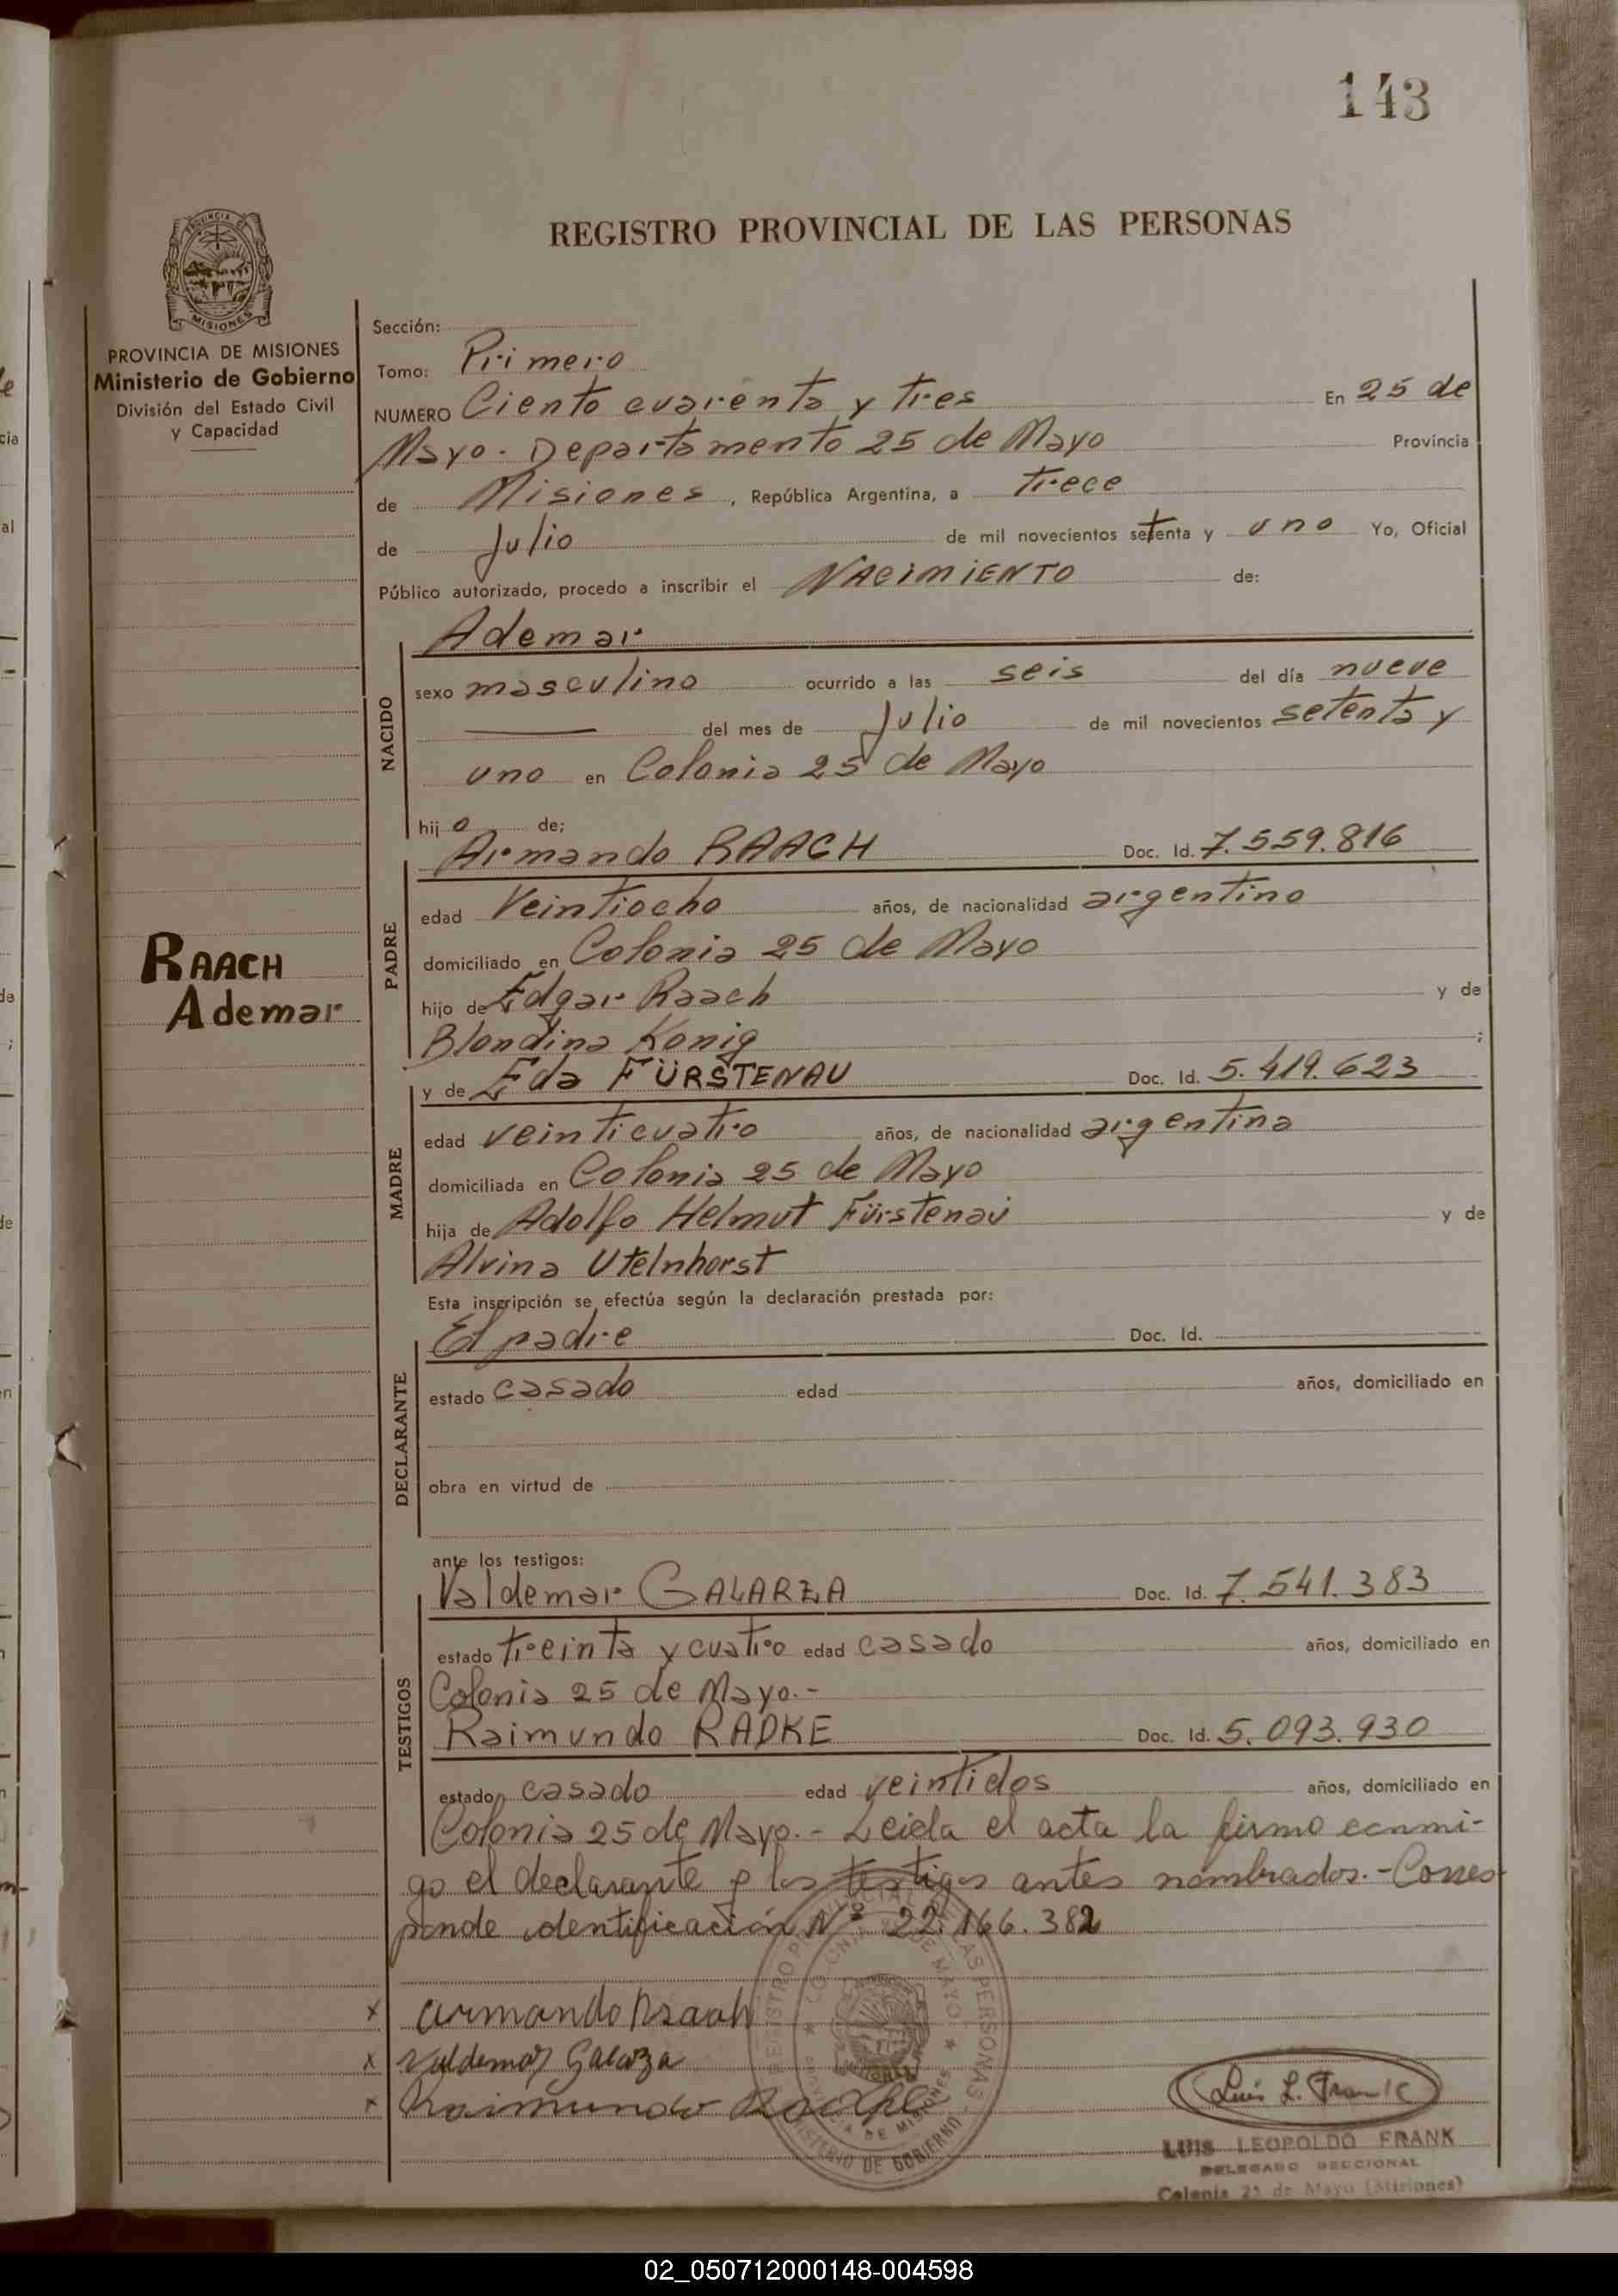 143
REGISTRO PROVINCIAL DE LAS PERSONAS
PROVINCIA DE MISIONES
Ministerio de Gobierno
División del Estado Civil
y Capacidad
Sección:
Tomo: Primero
NUMERO Ciento cuarenta y tres En 25 de
Mayo. Departamento 25 de Mayo Provincia
de Misiones, República Argentina, a trece
de Julio de mil novecientos setenta y uno Yo, Oficial
Público autorizado, procedo a inscribir el NACIMIENTO de:
NACIDO
Ademar
sexo masculino ocurrido a las seis del día nueve
del mes de Julio de mil novecientos setenta y
uno en Colonia 25 de Mayo
hijo de;
RAACH
Ademar
PADRE
Armando RAACH Doc. Id. 7.559.816
edad Veintiocho años, de nacionalidad argentino
domiciliado en Colonia 25 de Mayo
hijo de Edgar Raach y de
Blondina Konig ;
MADRE
y de Eda FÜRSTENAU Doc. Id. 5.419.623
edad veinticuatro años, de nacionalidad argentina
domiciliada en Colonia 25 de Mayo
hija de Adolfo Helmut Fürstenau y de
Alvina Utelnhorst
Esta inscripción se efectúa según la declaración prestada por:
DECLARANTE
El padre Doc. Id.
estado casado edad años, domiciliado en
obra en virtud de
ante los testigos:
TESTIGOS
Valdemar GALARZA Doc. Id. 7.541.383
estado treinta y cuatro edad casado años, domiciliado en
Colonia 25 de Mayo.-
Raimundo RADKE Doc. Id. 5.093.930
estado casado edad veintidos años, domiciliado en
Colonia 25 de Mayo.- Leida el acta la firma conmi-
go el declarante y los testigos antes nombrados.- Corres
ponde identificación Nº 22.166.382
x Armando Raach
x Valdemar Galarza
x Raimundo Radke
REGISTRO PROVINCIAL DE LAS PERSONAS
COLONIA 25 DE MAYO
PROVINCIA DE MISIONES
MINISTERIO DE GOBIERNO
Luis L. Frank
LUIS LEOPOLDO FRANK
DELEGADO SECCIONAL
Colonia 25 de Mayo (Misiones)
02_050712000148-004598